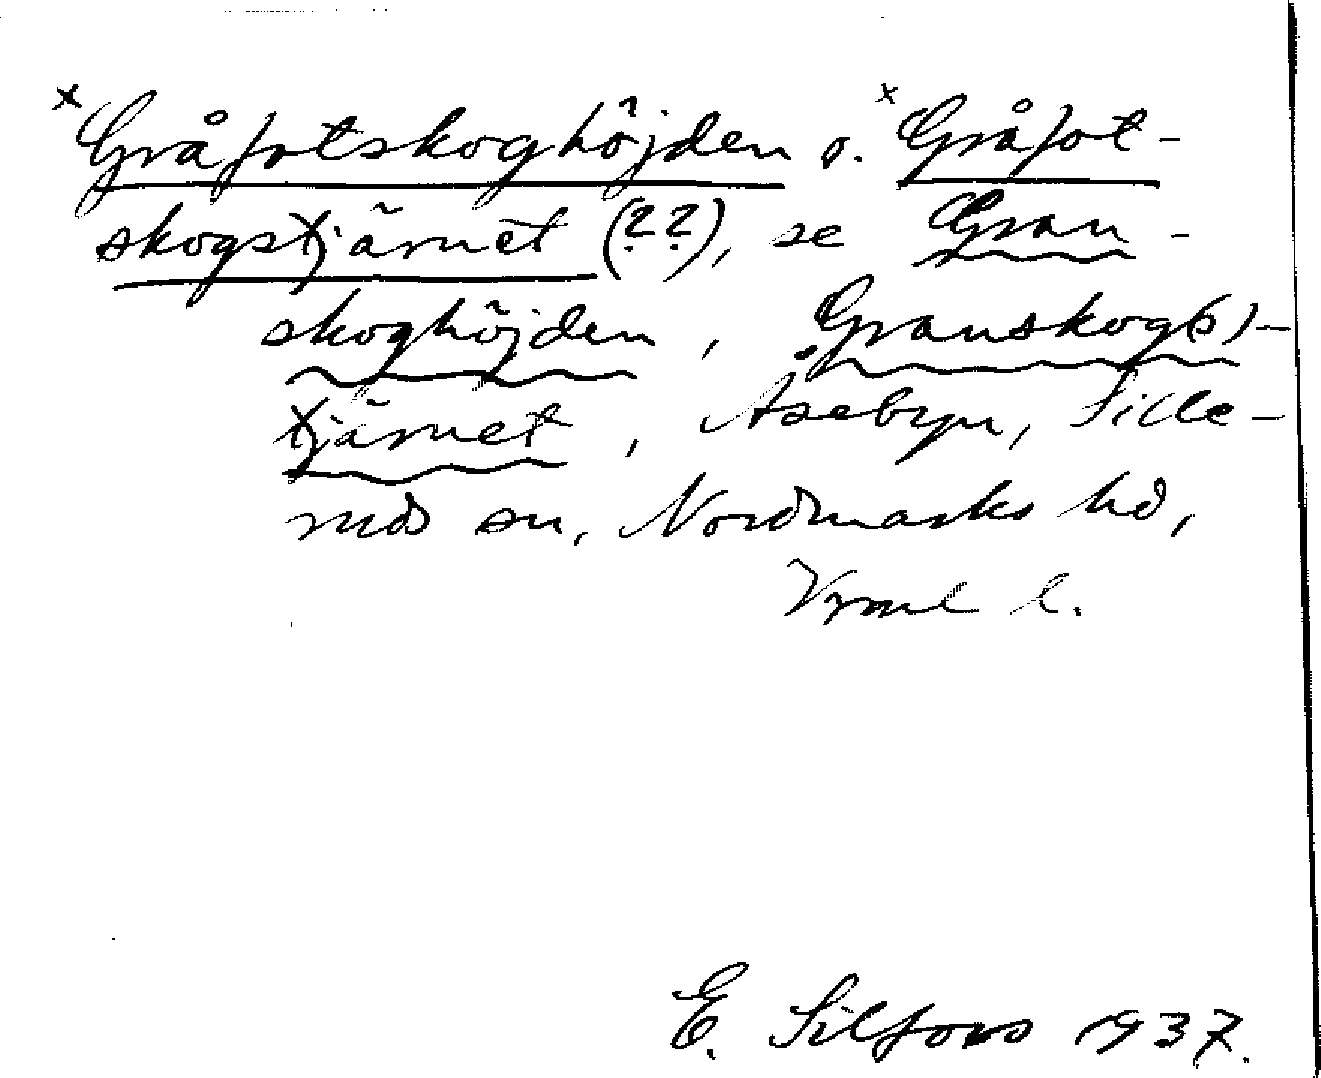 x Gråfotskoghöjden o. x Gråfot-
skogstjärnet (??), se Gran-
skoghöjden, Granskog(s)-
tjärnet, Åsebyn, Sille-
ruds sn, Nordmarks hd,
Vrml l.
E. Silfors 1937.